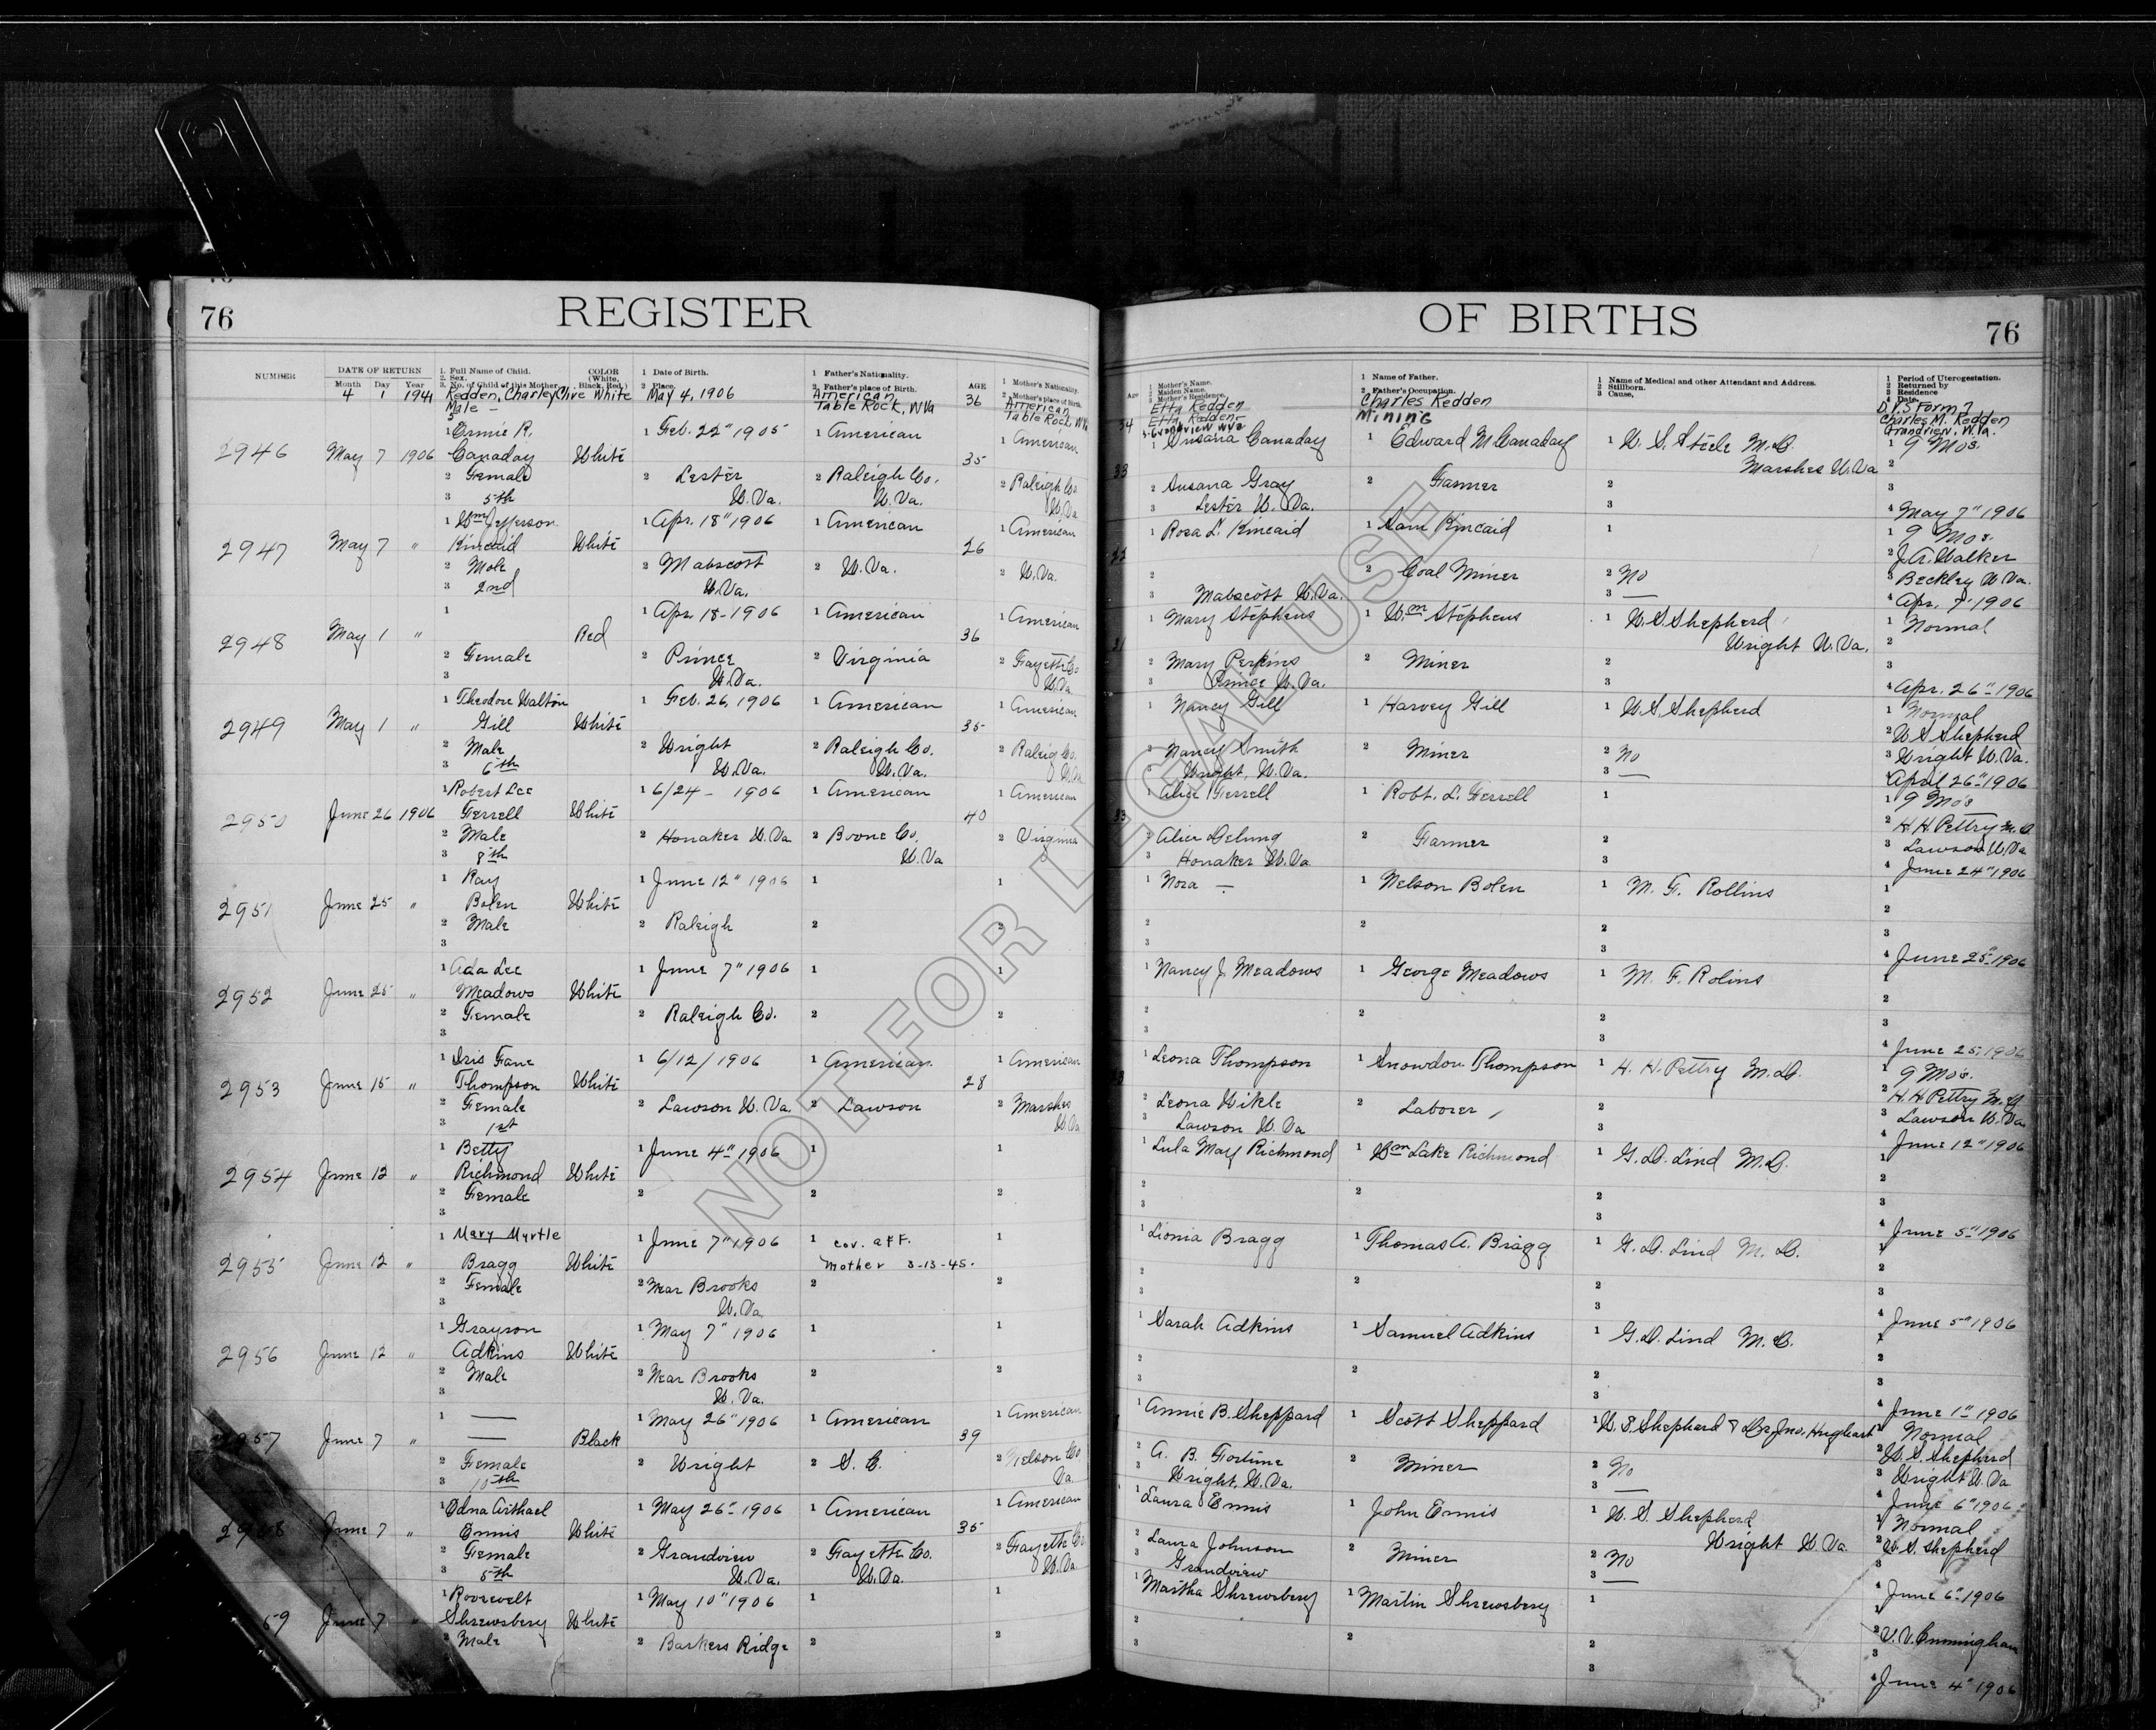 76 REGISTER OF BIRTHS 76
NUMBER
DATE OF RETURN
Month Day Year
1. Full Name of Child.
2. Sex.
3. No. of Child of this Mother.
COLOR
(White, Black, Red.)
1 Date of Birth.
2 Place.
1 Father's Nationality.
2 Father's place of Birth.
AGE
1 Mother's Nationality.
2 Mother's place of Birth.
Age
1 Mother's Name.
2 Maiden Name.
3 Mother's Residence.
1 Name of Father.
2 Father's Occupation.
1 Name of Medical and other Attendant and Address.
2 Stillborn.
3 Cause.
1 Period of Uterogestation.
2 Returned by
3 Residence
4 Date.
4 1 1941 Redden, Charley Clive White May 4, 1906 American 36 American
Male - Table Rock, W Va Table Rock, W Va
34 Etta Redden Charles Redden D.V.S Form 7
Etta Redden Mining Charles M. Redden
3. Grandview W Va Grandview, W. Va.
2946 May 7 1906 White 35
1 Ormie R. 1 Feb. 22" 1905 1 American 1 American
Canaday
2 Female 2 Lester 2 Raleigh Co. 2 Raleigh Co
3 5th W. Va. W. Va. W. Va
33 1 Susana Canaday 1 Edward M Canaday 1 W. S. Steele M.D. 1 9 Mos.
Marshes W. Va 2
2 Susana Gray 2 Farmer 2 3
3 Lester W. Va. 3 4 May 7" 1906
2947 May 7 " White 26
1 Wm Jefferson 1 Apr. 18" 1906 1 American 1 American
Kincaid
2 Male 2 Mabscott 2 W. Va. 2 W. Va.
3 2nd W. Va.
22 1 Rosa L. Kincaid 1 Sam Kincaid 1 1 9 Mos.
2 J. A. Walker
2 2 Coal Miner 2 No 3 Beckley W Va.
3 Mabscott W. Va. 3 — 4 Apr. 7" 1906
2948 May 1 " Red 36
1 1 Apr. 18 - 1906 1 American 1 American
2 Female 2 Prince 2 Virginia 2 Fayette Co
3 W. Va. W. Va
21 1 Mary Stephens 1 Wm Stephens 1 W. S. Shepherd 1 Normal
Wright W. Va. 2
2 Mary Perkins 2 Miner 2 3
3 Prince W. Va. 3 4 Apr. 26" 1906
2949 May 1 " White 35
1 Theodore Walton 1 Feb. 26, 1906 1 American 1 American
Gill
2 Male 2 Wright 2 Raleigh Co. 2 Raleig Co.
3 6th W. Va. W. Va. W. Va
1 Nancy Gill 1 Harvey Gill 1 W. S. Shepherd 1 Normal
2 W S Shepherd
2 Nancy Smith 2 Miner 2 No 3 Wright W. Va.
3 Wright, W. Va. 3 — 4 April 26" 1906
2950 June 26 1906 White 40
1 Robert Lee 1 6/24 - 1906 1 American 1 American
Ferrell
2 Male 2 Honaker W. Va 2 Boone Co, 2 Virginia
3 8th W. Va
33 1 Alice Ferrell 1 Robt. L. Ferrell 1 1 9 Mo's
2 H. H. Pettry M. D
2 Alice Delung 2 Farmer 2 3 Lawson W. Va
3 Honaker W. Va 3 4 June 24" 1906
2951 June 25 " White
1 Ray 1 June 12" 1906 1 1
Bolen
2 Male 2 Raleigh 2 2
3
1 Nora — 1 Nelson Bolen 1 M. F. Rollins 1
2 2 2 2
3 3 3
4 June 25" 1906
2952 June 25 " White
1 Ada Lee 1 June 7" 1906 1 1
Meadows
2 Female 2 Raleigh Co. 2 2
3
1 Nancy J. Meadows 1 George Meadows 1 M. F. Rolins 1
2 2 2 2
3 3 3
4 June 25, 1906
2953 June 15 " White 28
1 Iris Fane 1 6/12/1906 1 American 1 American
Thompson
2 Female 2 Lawson W. Va. 2 Lawson 2 Marshes
3 1st W. Va
1 Leona Thompson 1 Snowdon Thompson 1 H. H. Pettry M. D. 1 9 Mo's.
2 H. H Pettry M. D
2 Leona Wikle 2 Laborer 2 3 Lawson W. Va
3 Lawson W. Va 3 4 June 12" 1906
2954 June 12 " White
1 Betty 1 June 4" 1906 1 1
Richmond
2 Female 2 2 2
3
1 Lula May Richmond 1 Wm Lake Richmond 1 G. D. Lind M. D. 1
2 2 2 2
3 3 3
4 June 5" 1906
2955 June 12 " White
1 Mary Myrtle 1 June 7" 1906 1 cor. aff. 1
Bragg mother 3-13-45.
2 Female 2 Near Brooks 2 2
3 W. Va
1 Lionia Bragg 1 Thomas A. Bragg 1 G. D. Lind M. D. 1
2 2 2 2
3 3 3
4 June 5" 1906
2956 June 12 " White
1 Grayson 1 May 7" 1906 1 1
Adkins
2 Male 2 Near Brooks 2 2
3 W. Va.
1 Sarah Adkins 1 Samuel Adkins 1 G. D. Lind M. D. 1
2 2 2 2
3 3 3
4 June 1" 1906
2957 June 7 " Black 39
1 — 1 May 26" 1906 1 American 1 American
—
2 Female 2 Wright 2 S. C. 2 Nelson Co,
3 10th Va
1 Annie B. Sheppard 1 Scott Sheppard 1 W. S. Shepherd & Dr. Jno. Hughart 1 Normal
2 W. S. Shepherd
2 A. B. Fortune 2 Miner 2 No 3 Wright W. Va
3 Wright, W. Va. 3 — 4 June 6" 1906
2958 June 7 " White 35
1 Edna 1 May 26" 1906 1 American 1 American
Ennis
2 Female 2 Grandview 2 Fayette Co. 2 Fayette Co
3 5th W. Va. W. Va. W. Va
1 Laura Ennis 1 John Ennis 1 W. S. Shepherd 1 Normal
Wright W. Va. 2 W. S. Shepherd
2 Laura Johnson 2 Miner 2 No 3
3 Grandview 3 — 4 June 6" 1906
59 June 7 " White
1 Roosevelt 1 May 10" 1906 1 1
Shrewsbery
2 Male 2 Barkers Ridge 2 2
1 Martha Shrewsbery 1 Martin Shrewsbery 1 1
2 2 2 2 V. V. Cunningham
3 3 3
4 June 4" 1906
NOT FOR LEGAL USE